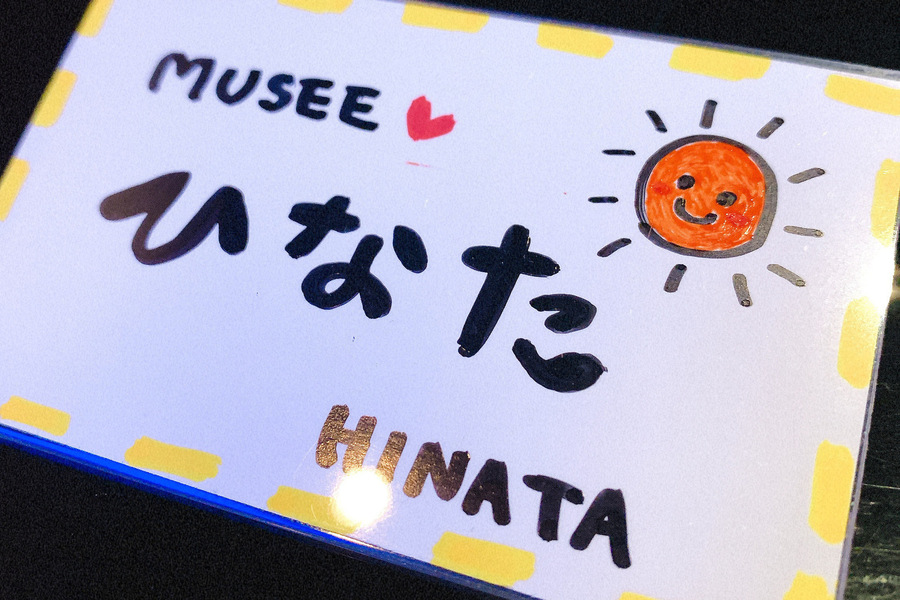 MUSEE
ひなた
HINATA